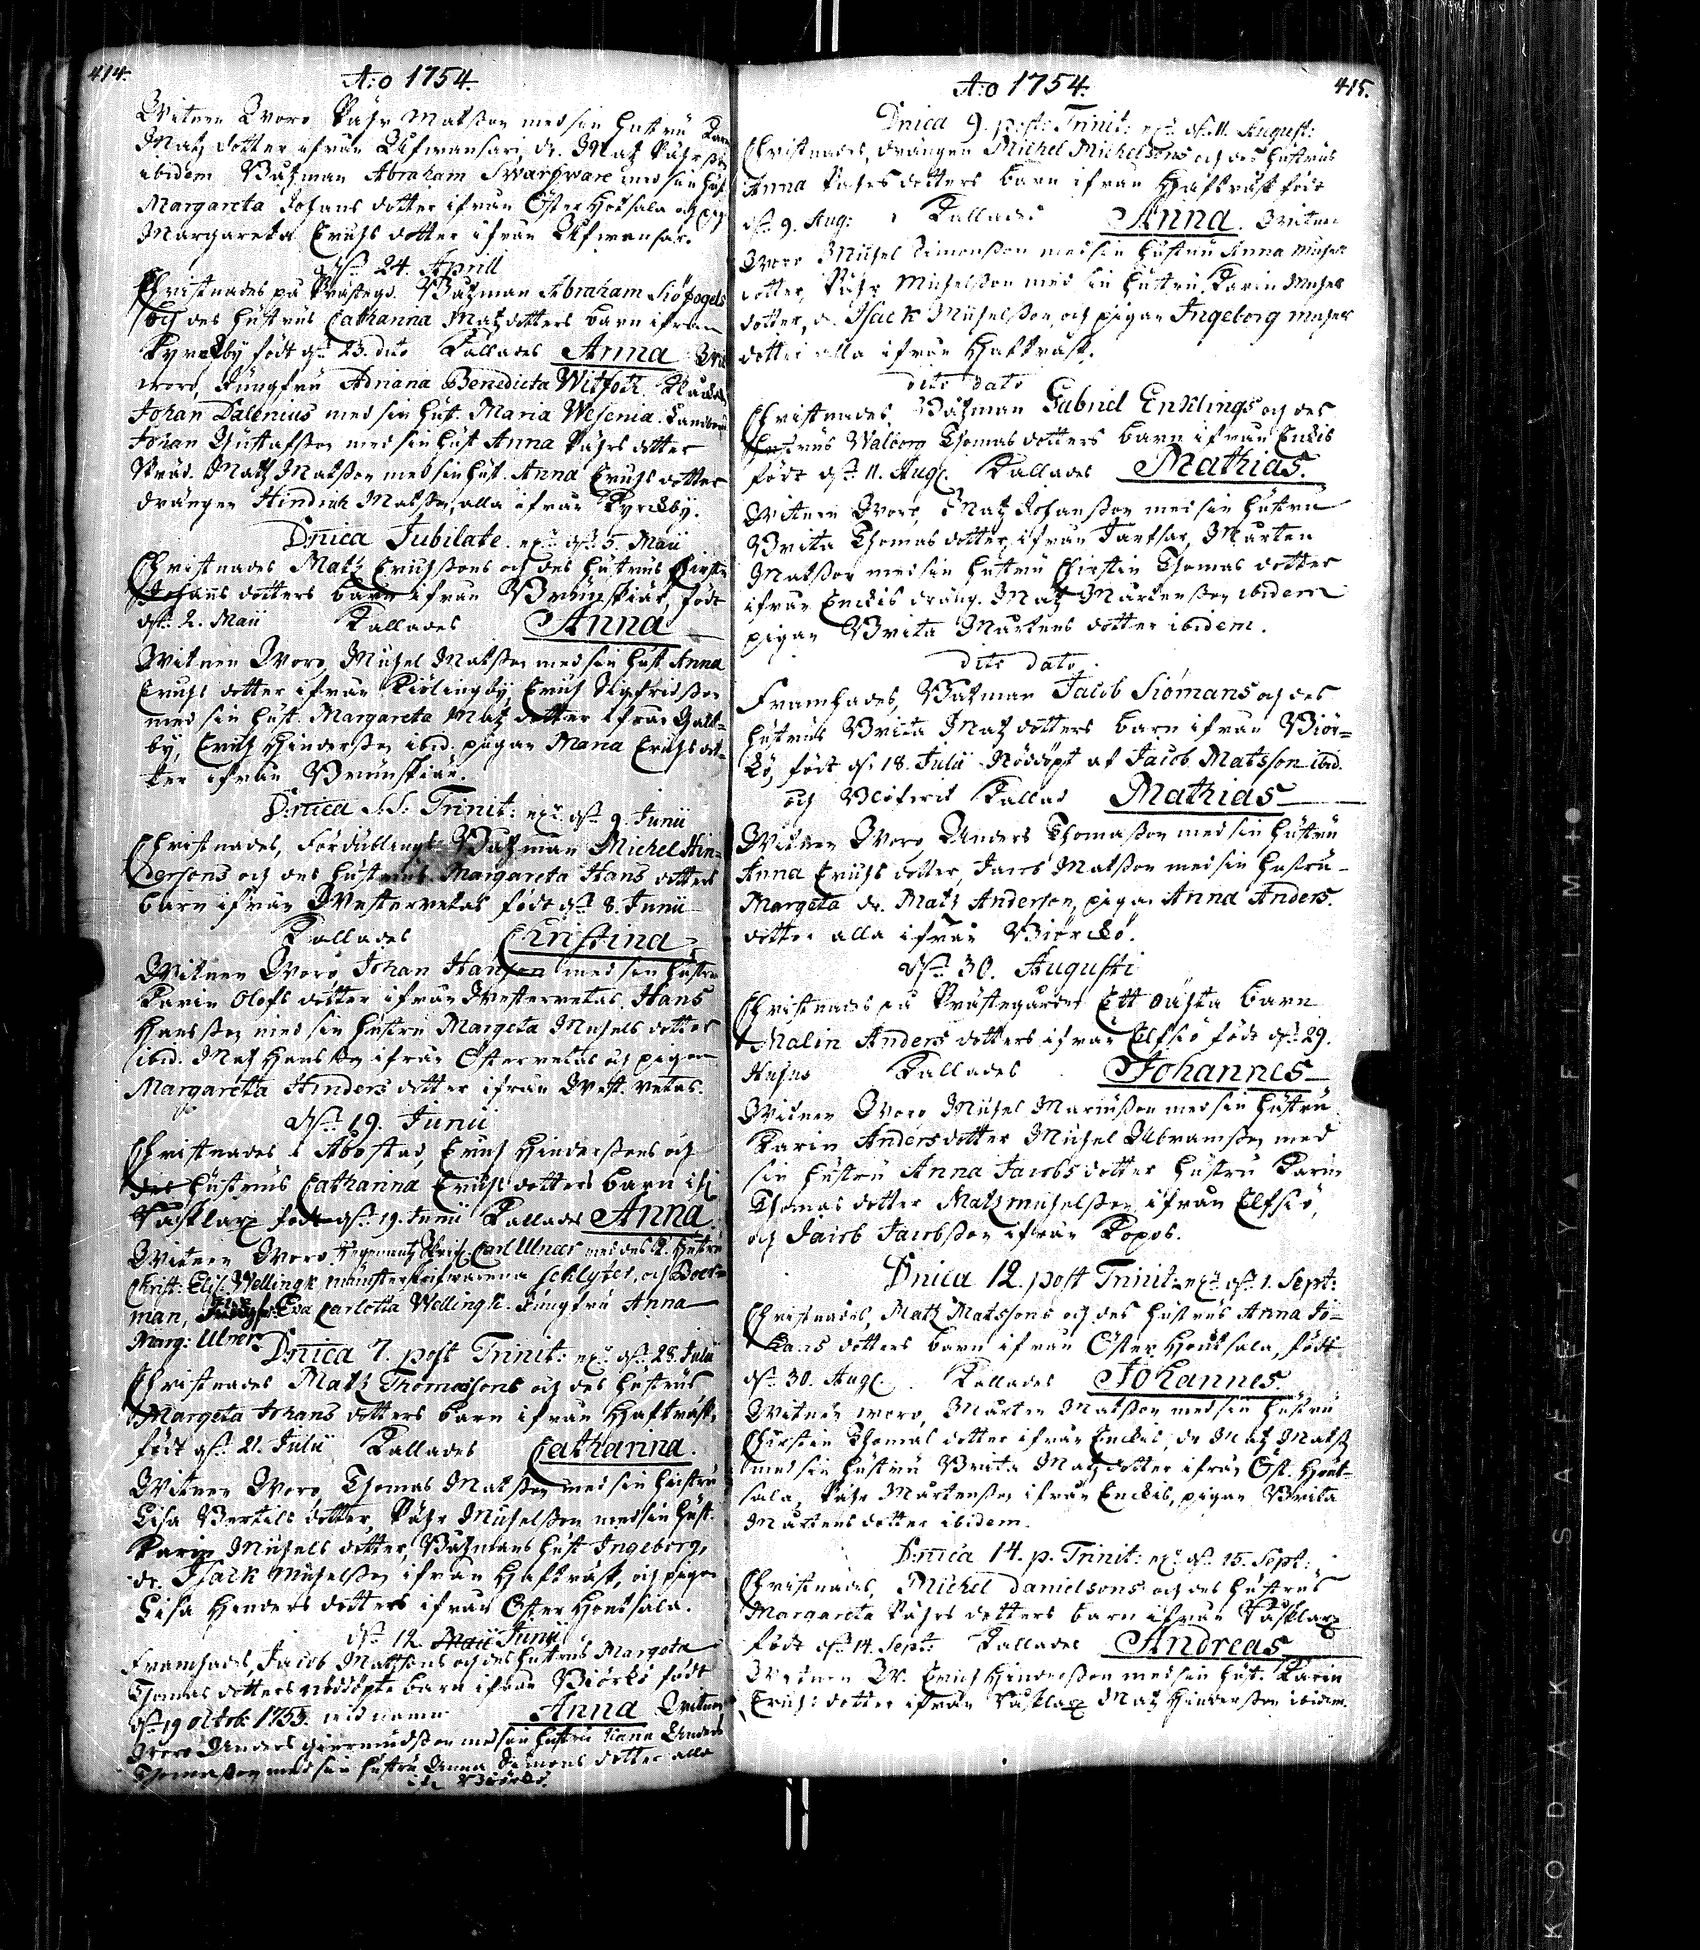 414.
A:o 1754.
Witnen Woro Påhr Matsson med sin hustru
Matz dotter ifrån Ahwensari, dr. Matz Påhrsson
ibidem Båtzman Abraham Swartzware med sin hust.
Margareta Johans dotter ifrån Öster Hoñsala och
Margareta Erichs dotter ifrån
d. 24. Aprill
Christnades på Prästegd. Båtzman Abraham Siöfogels
och des hustrus Catharina Matzdotters barn ifrån
Kyrckby födt d. 23. dito Kallades Anna
woro, Jungfru Adriana Benedicta Witfoth
Johan Dalenius med sin hust. Maria Wesenia.
Johan Gustafsson med sin hust. Anna Påhrs dotter
Matz Matsson med sin hust. Anna Erichs dotter
drängen Hindrich Matsson, alla ifrån Kyrckby.
Dnica Jubilate d. 5. Maii
Christnades Matz Erichssons och des hustrus
Johans dotters barn ifrån Brunskiär, födt
d. 2. Maii Kallades Anna
Witnen Woro, Michel Matsson med sin hust Anna
Erichs dotter ifrån Kiölingby Erich Sigfridsson
med sin hust. Margareta Matz dotter ifrån Gald-
by, Erich Hindersson ibid. pigan Maria Erichs dot-
ter ifrån Brunskiär.
Dnica S.S. Trinit: d. 9. Junii
Christnades, Fördubblings Båtzman Michel Hin-
dersons och des hustrus Margareta Hans dotters
barn ifrån Westerretas födt d. 8. Junii
Kallades Christina
Witnen Woro Johan Hanson med sin hustru
Karin Olofs dotter ifrån Westerretas, Hans
Hansson med sin hustru Margeta Michels dotter
ibid. Matz Hansson ifrån Österretas och pigan
Margaretta Hinders dotter ifrån West. retas.
d. 19. Junii
Christnades i Åbo stad, Erich Hinderssons och
des hustrus Catharina Erichs dotters barn
födt d. 19. Junii Kallades Anna
Witnen Woro Carl Ulner med des k. hustru
Christ: Elis: Wellingk Schlyter, och Boes-
man, Eva Carlotta Wellingk. Jungfru Anna
Marg: Ulner
Dnica 7. post Trinit: d. 28. Julii
Christnades Matz Thomassons och des hustrus
Margeta Johans dotters barn ifrån Haftträsk,
födt d. 21. Julii Kallades Catharina.
Witnen Woro, Thomas Matsson med sin hustru
Lisa Bertils dotter, Påhr Michelsson med sin hust.
Karin Michels dotter, Båtzmans hust Ingeborg,
dr. Isack Michelsson ifrån Haftträsk, och pigan
Lisa Hinders dotters ifrån Öster Hoñsala.
d. 12. Maii Junii
Framhades, Jacob Matssons och des hustrus Margeta
Thomas dotters nöddöpte barn ifrån Biörkö födt
d. 19 octob. 1753. wid namn Anna Witnen
Woro Anders med sin hustru Anna Anders
Thomasson med sin hustru Anna Simons dotter alla
ifr. Biörkö.
A:o 1754.
415.
Dnica 9. post: Trinit: d. 11. August:
Christnades, drängen Michel Michelsons och des hustrus
Anna Påhrs dotters barn ifrån Haftträsk födt
d. 9. Aug: Kallades Anna. Witnen
Woro Michel Simonsson med sin hustru Anna Michels
dotter, Påhr Michelsson med sin hustru Karin Michels
dotter, dr. Isack Michelsson, och pigan Ingeborg Michels
dotter alla ifrån Haftträsk.
dito dato
Christnades, Båtzman Gabriel Enklings och des
hustrus Walborg Thomas dotters barn ifrån Enckis
födt d. 11. Aug. Kallades Mathias.
Witnen Woro, Matz Johansson med sin hustru
Brita Thomas dotter, ifrån Jarfsar, Mårten
Matsson med sin hustru Chirstin Thomas dotter
ifrån Enckis dräng. Matz Mårtensson ibidem
pigan Brita Mårtens dotter ibidem.
dito dato
Framhades, Båtzman Jacob Siömans och des
hustrus Brita Matz dotters barn ifrån Biör-
kö, födt d. 18. Julii Nöddöpt af Jacob Matsson ibid.
och Kallad Mathias
Witnen Woro Anders Thomasson med sin hustru
Anna Erichs dotter, Jacob Matsson med sin hustru
Margeta dr. Matz Anderson, pigan Anna Anders.
dotter alla ifrån Biörckö.
d. 30. Augusti
Christnades på Prästegården Ett oächta barn
Malin Anders dotters ifrån Elfsiö födt d. 29.
Hujus Kallades Johannes
Witnen Woro Michel Mårtensson med sin hustru
Karin Anders dotter Michel Abramsson med
sin hustru Anna Jacobs dotter hustru Karin
Thomas dotter Matz Michelsson ifrån Elfsiö,
och Jacob Jacobsson ifrån Kopos.
Dnica 12. post Trinit. d. 1. Sept:
Christnades, Matz Matssons och des hustrus Anna Jo-
hans dotters barn ifrån Öster Hoñsala, födt
d. 30. Aug. Kallades Johannes.
Witnen woro, Mårten Matsson med sin hustru
Chirstin Thomas dotter ifrån Enckis, dr Matz Matss
med sin hustru Brita Matz dotter ifrån Öst. Hoñ-
sala, Påhr Mårtensson ifrån Enckis, pigan Brita
Mårtens dotter ibidem.
Dnica 14. p. Trinit: d. 15. Sept:
Christnades, Michel Danielsons och des hustrus
Margareta Påhrs dotters barn ifrån
födt d. 14. Sept: Kallades Andreas
Witnen W. Erich Hindersson med sin hust. Karin
Erichs: dotter ifrån Matz Hindersson ibidem.
KODAK SAFETY ▲ FILM